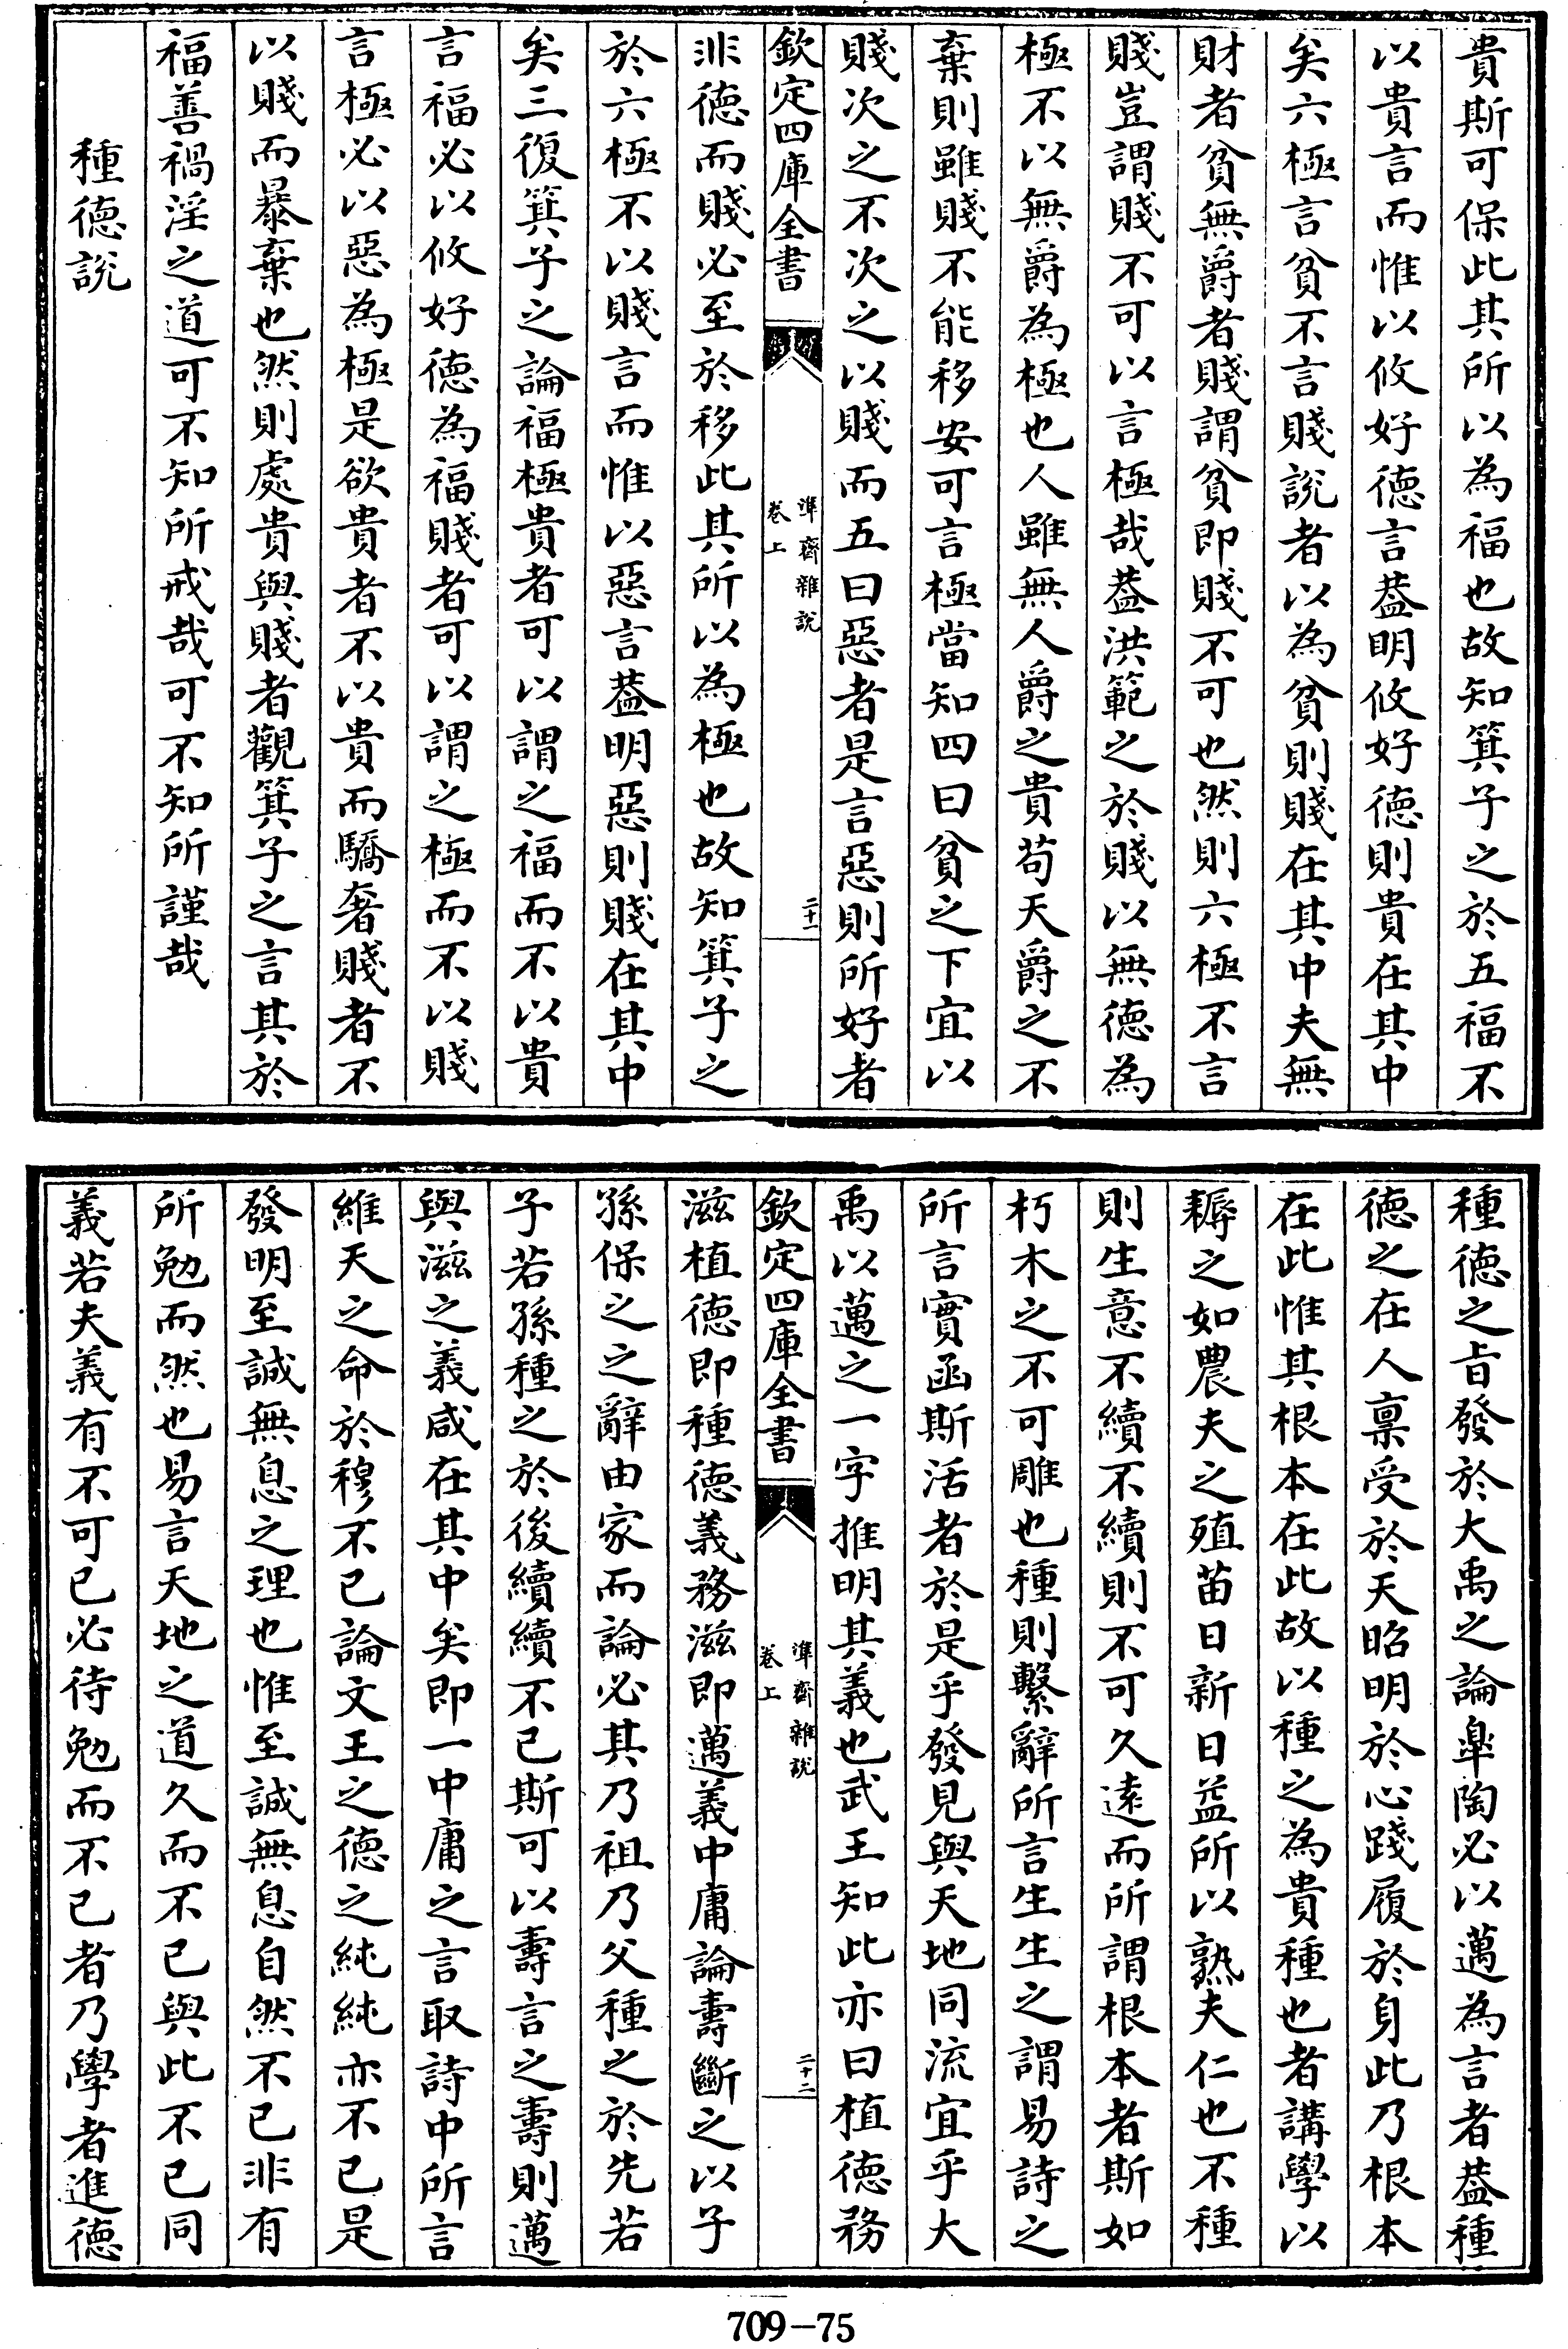 貴斯可保此其所以為福也故知箕子之於五福不
以貴言而惟以攸好德言葢明攸好德則貴在其中
矣六極言貧不言賤說者以為貧則賤在其中夫無
財者貧無爵者賤謂貧即賤不可也然則六極不言
賤豈謂賤不可以言極哉葢洪範之於賤以無德為
極不以無爵為極也人雖無人爵之貴苟天爵之不
棄則雖賤不能移安可言極當知四曰貧之下宜以
賤次之不次之以賤而五曰惡者是言惡則所好者
欽定四庫全書
準齋雜說
卷上
二十一
非德而賤必至於移此其所以為極也故知箕子之
於六極不以賤言而惟以惡言葢明惡則賤在其中
矣三復箕子之論福極貴者可以謂之福而不以貴
言福必以攸好德為福賤者可以謂之極而不以賤
言極必以惡為極是欲貴者不以貴而驕奢賤者不
以賤而暴棄也然則處貴與賤者觀箕子之言其於
福善禍淫之道可不知所戒哉可不知所謹哉
種德說
種德之旨發於大禹之論皐陶必以邁為言者葢種
德之在人禀受於天昭明於心踐履於身此乃根本
在此惟其根本在此故以種之為貴種也者講學以
耨之如農夫之殖苗日新日益所以熟夫仁也不種
則生意不續不續則不可久遠而所謂根本者斯如
朽木之不可雕也種則繫辭所言生生之謂易詩之
所言實函斯活者於是乎發見與天地同流宜乎大
禹以邁之一字推明其義也武王知此亦曰植德務
欽定四庫全書
準齋雜說
卷上
二十二
滋植德即種德義務滋即邁義中庸論壽斷之以子
孫保之之辭由家而論必其乃祖乃父種之於先若
子若孫種之於後續續不已斯可以壽言之壽則邁
與滋之義咸在其中矣即一中庸之言取詩中所言
維天之命於穆不已論文王之德之純純亦不已是
發明至誠無息之理也惟至誠無息自然不已非有
所勉而然也易言天地之道久而不已與此不已同
義若夫義有不可已必待勉而不已者乃學者進德
709-75